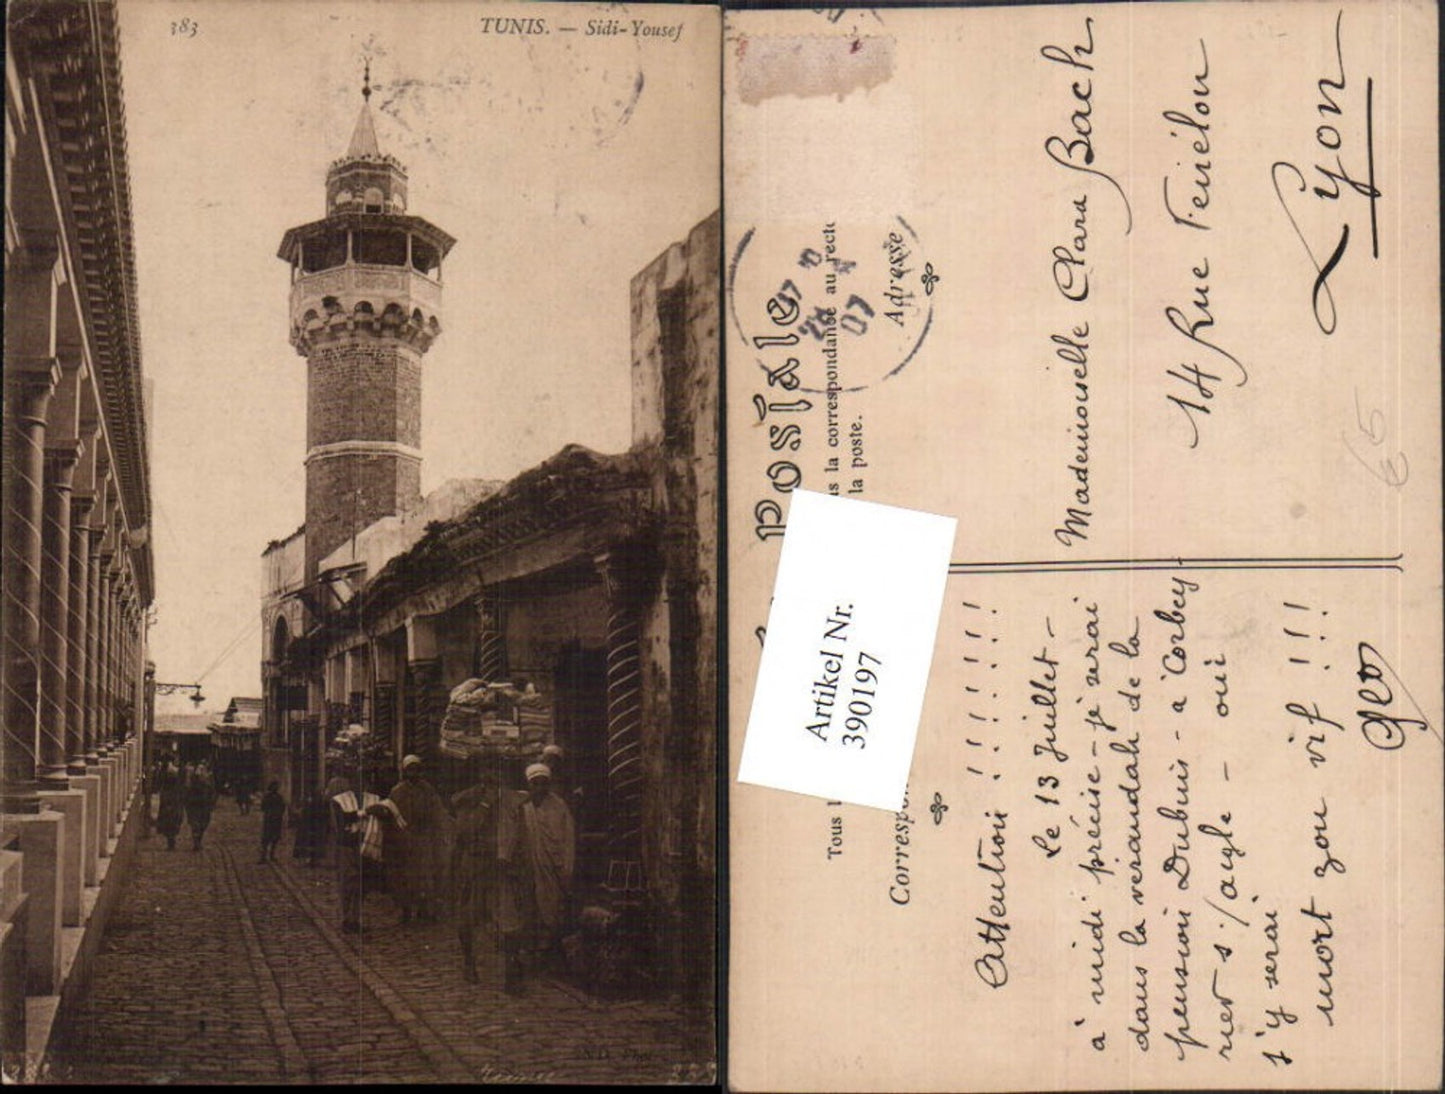 383
TUNIS. — Sidi-Yousef
ND. Phot
Postale
Tous l
is la correspondance au recto
la poste.
Corresp
Adresse
24
07
Artikel Nr.
390197
€5
Mademoiselle Clara Bach
14 Rue
Lyon
Attention !!!!!!!
Le 13 Juillet —
à midi précise - je serai
dans la verandah de la
pension Dubuis - à Corbey-
rier s/aigle — oui
j'y serai
mort ou vif !!!
Geo